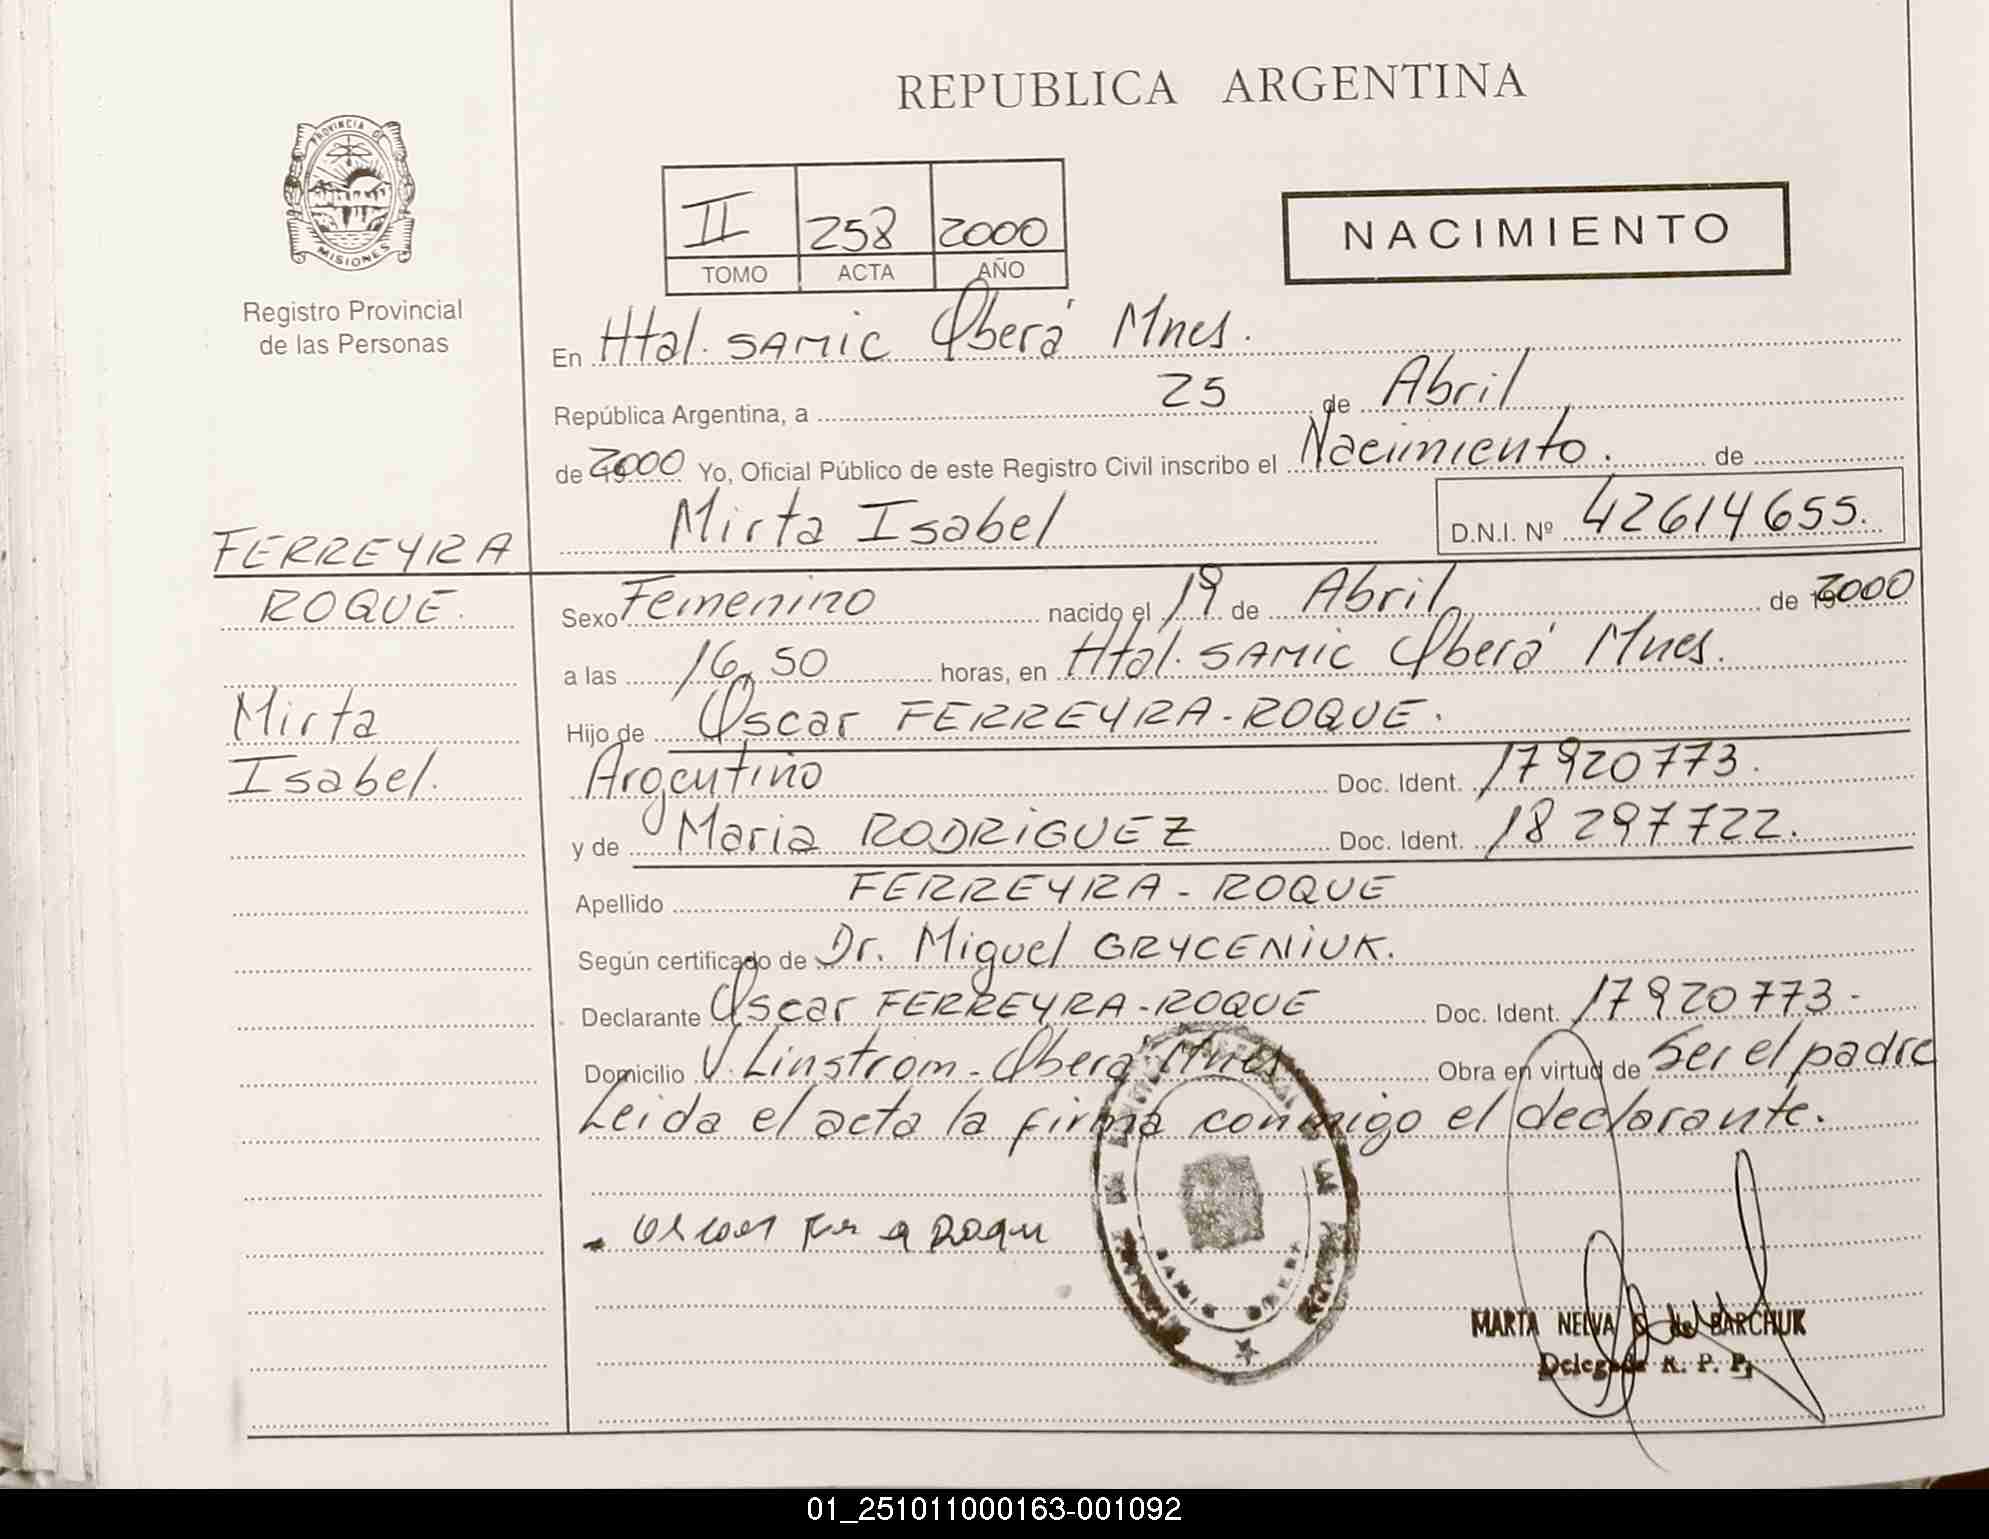 REPUBLICA ARGENTINA
PROVINCIA DE
MISIONES
Registro Provincial
de las Personas
II 258 2000
TOMO ACTA AÑO
NACIMIENTO
En Htal. SAMIC Oberá Mnes.
República Argentina, a 25 de Abril
de 2000 Yo, Oficial Público de este Registro Civil inscribo el Nacimiento. de
Mirta Isabel D.N.I. Nº 42614655.
FERREYRA
ROQUE.
Mirta
Isabel.
Sexo Femenino nacido el 19 de Abril de 2000
a las 16,50 horas, en Htal. SAMIC Oberá Mnes.
Hijo de Oscar FERREYRA-ROQUE.
Argentino Doc. Ident. 17920773.
y de Maria RODRIGUEZ Doc. Ident. 18297722.
Apellido FERREYRA-ROQUE
Según certificado de Dr. Miguel GRYCENIUK.
Declarante Oscar FERREYRA-ROQUE Doc. Ident. 17920773-
Domicilio V. Linstrom-Oberá Mnes. Obra en virtud de Ser el padre
Leida el acta la firma conmigo el declarante.
SAMIC OBERA
MARTA NELVA S. de BARCHUK
Delegada R. P. P.
01_251011000163-001092